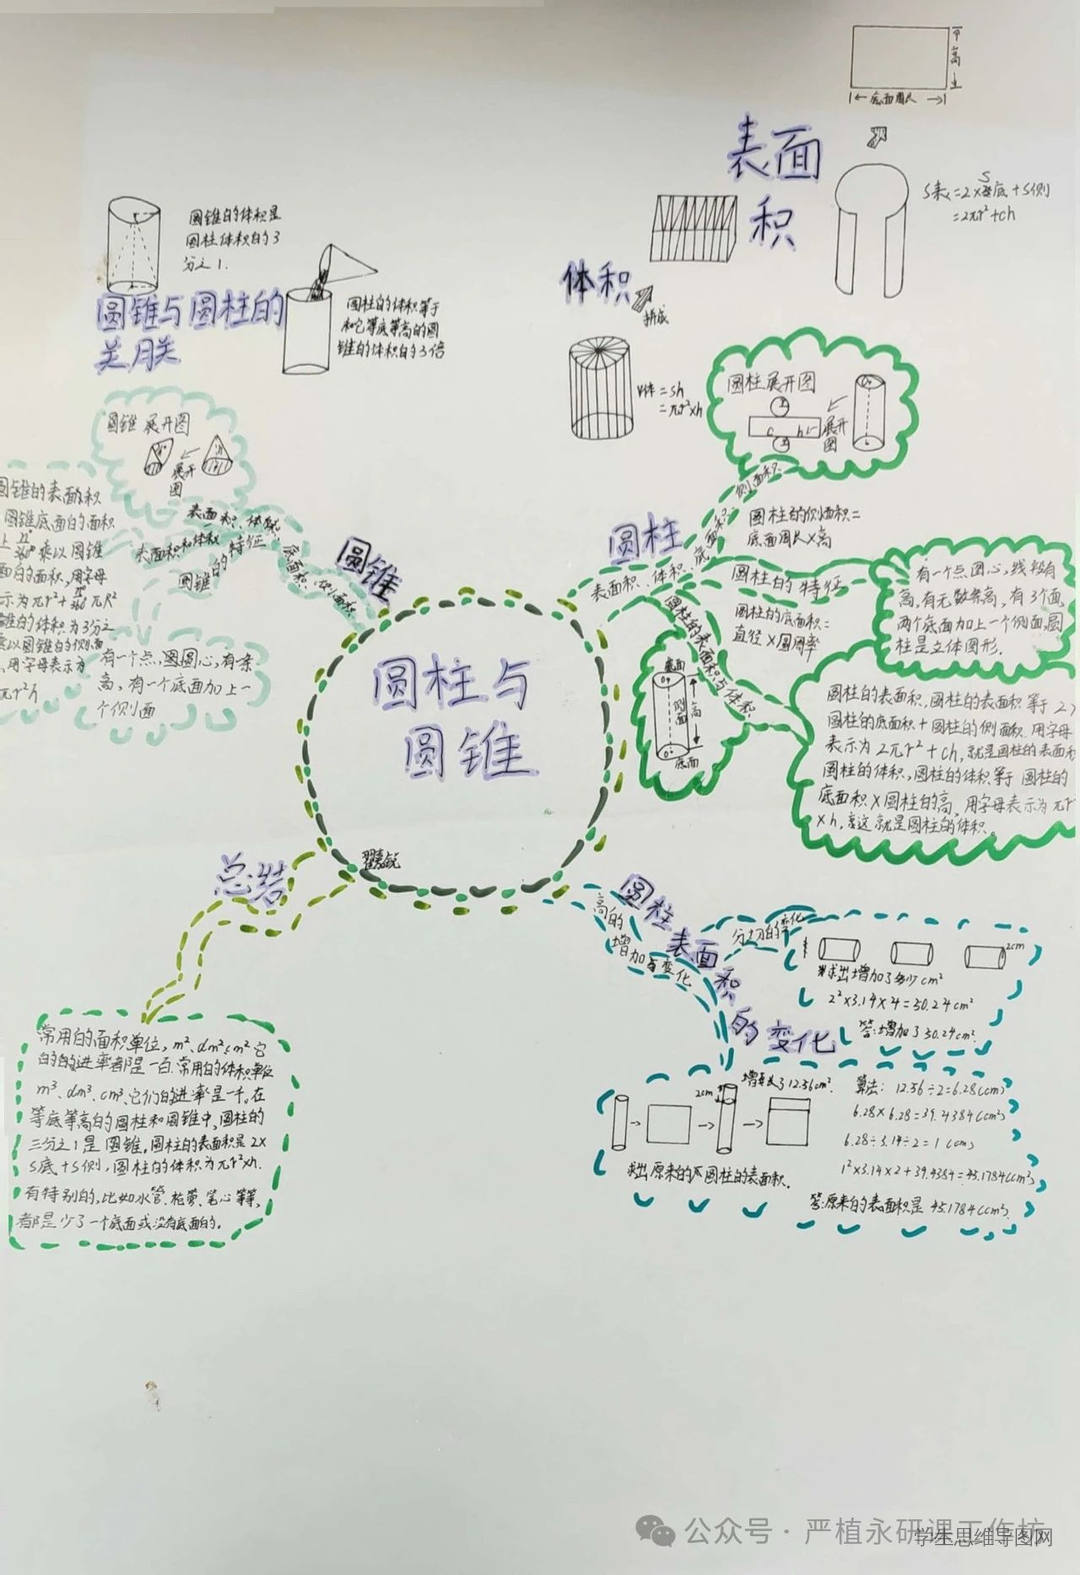 高
底面周长
表面
积
S表=2×S底+S侧
=2πr²+ch
圆锥的体积是
圆柱体积的3
分之1.
圆锥与圆柱的
关月关
圆柱的体积等于
和它等底等高的圆
锥的体积的3倍
体积
拼成
V体=sh
=πr²×h
圆柱展开图
展开
图
c
h
侧面积
圆锥展开图
展开
图
圆锥的表面积
圆锥底面的面积
乘以圆锥
面的面积,用字母
示为πr²+
πR²
锥的体积为3分之
以圆锥的侧面
,用字母表示为
πr²h
表面积、体积、
底面积、侧面积
表面积和体积
圆锥的特征
有一个点,圆圆心,有一条
高,有一个底面加上一
个侧面
圆锥
圆柱
表面积、体积、底面积
圆柱的侧面积=
底面周长×高
圆柱的特征
圆柱的底面积=
直径×圆周率
有一个点圆心,线段有
高,有无数条高,有3个面,
两个底面加上一个侧面,圆
柱是立体图形.
圆柱的表面积与体积
底面
侧面
高
底面
圆柱的表面积,圆柱的表面积等于2×
圆柱的底面积+圆柱的侧面积.用字母
表示为2πr²+ch,就是圆柱的表面积
圆柱的体积,圆柱的体积等于圆柱的
底面积×圆柱的高,用字母表示为πr²
×h,这就是圆柱的体积.
圆柱与
圆锥
总结
常用的面积单位,m²、dm²、cm²它
们的进率都是一百.常用的体积单位
m³、dm³、cm³,它们的进率是一千。在
等底等高的圆柱和圆锥中,圆柱的
三分之1是圆锥,圆柱的表面积是2×
S底+S侧,圆柱的体积为πr²×h.
有特别的,比如水管、笔心等等,
都是少了一个底面或没有底面的。
圆柱
表面
积
的变化
高的
增加与变化
分切的变化
2cm
求出增加了多少cm²
2²×3.14×4=50.24cm²
答:增加了50.24cm².
2cm
增加了12.56cm².
求出原来的圆柱的表面积.
算法: 12.56÷2=6.28(cm)
6.28×6.28=39.4384(cm²)
6.28÷3.14÷2=1(cm)
1²×3.14×2+39.4384=45.1784(cm²)
答:原来的表面积是45.1784(cm²).
公众号·严植永研课工作坊
学生思维导图网